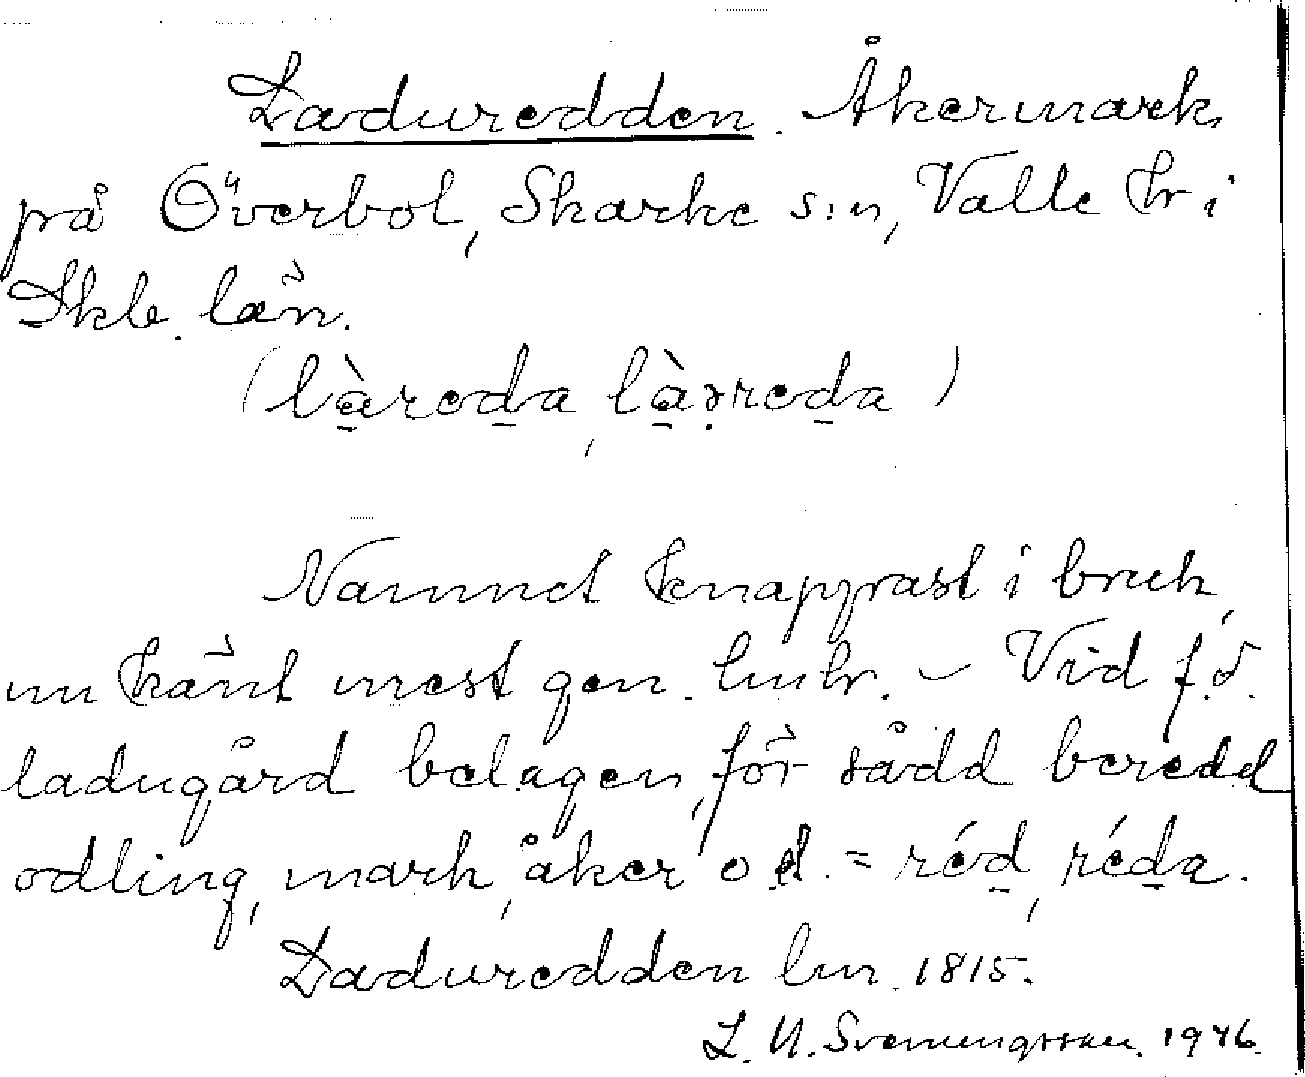 Laduredden. Åkermark
på Överbol, Skarke s:n, Valle hr i
Skb. län.
(làreda, làǝreda)
Namnet knappast i bruk,
nu känt mest gen. lmhr. – Vid f.d.
ladugård belagen, för sådd beredd
odling, mark, åker o d. = réd, réda.
Laduredden lm. 1815.
L. N. Svenungsson. 1946.